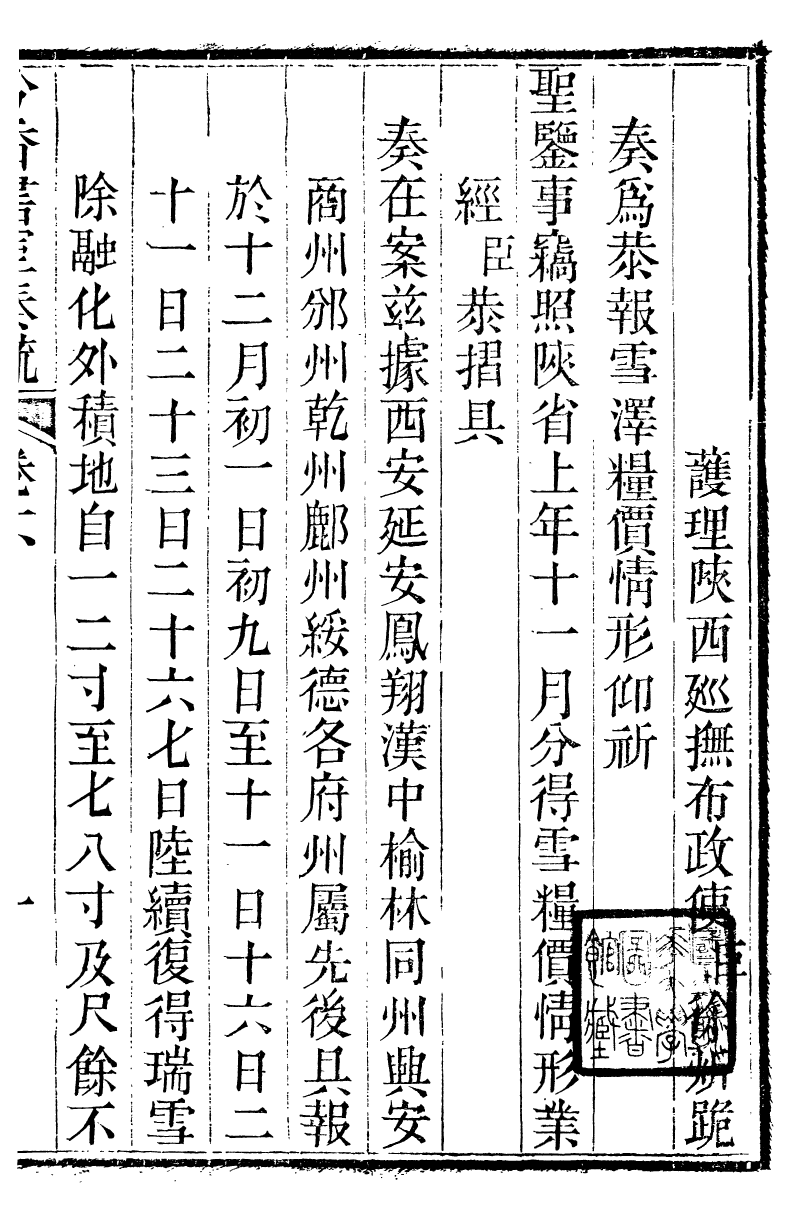 護理陝西廵撫布政使臣徐炘跪
奏爲恭報雪澤糧價情形仰祈
聖鑒事竊照陝省上年十一月分得雪糧價情形業
經臣恭摺具
奏在案兹據西安延安鳳翔漢中榆林同州興安
商州邠州乾州鄜州綏德各府州屬先後具報
於十二月初一日初九日至十一日十六日二
十一日二十三日二十六七日陸續復得瑞雪
除融化外積地自一二寸至七八寸及尺餘不
奏疏